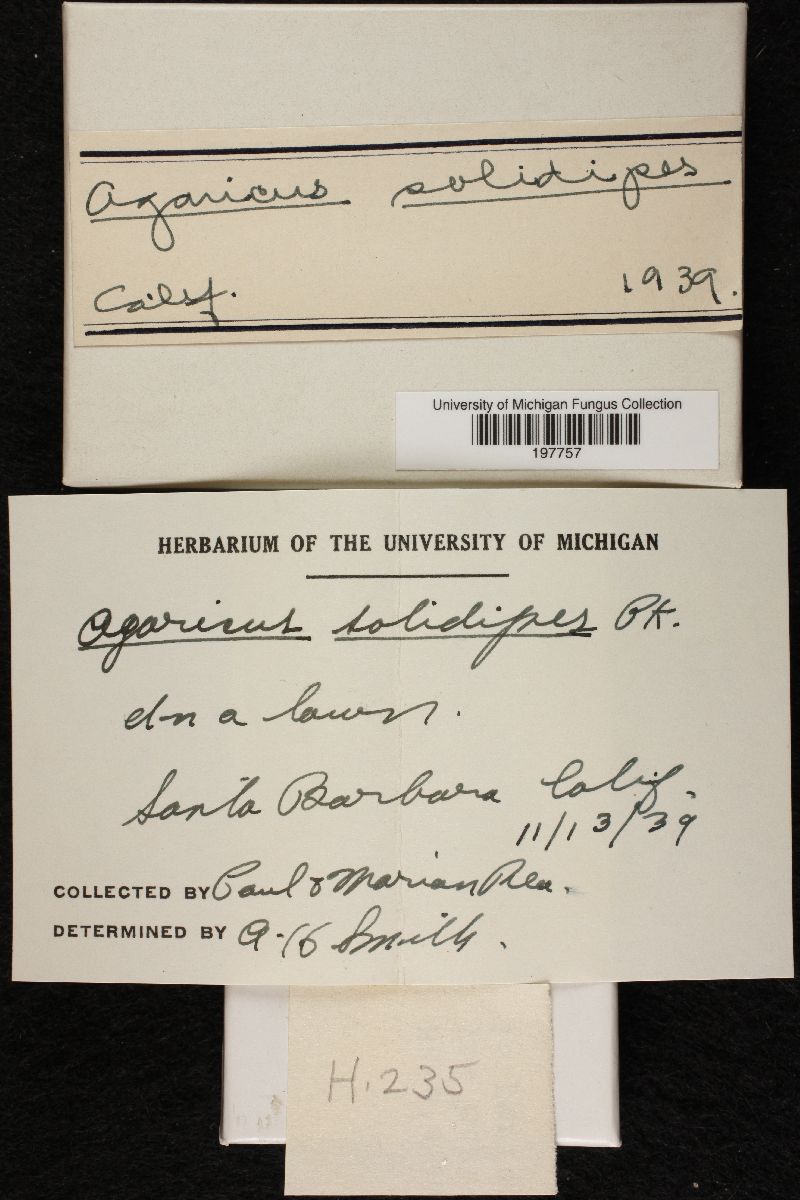 Agaricus solidipes
Calif. 1939.
University of Michigan Fungus Collection
197757
HERBARIUM OF THE UNIVERSITY OF MICHIGAN
Agaricus solidipes Pk.
On a lawn.
Santa Barbara Calif.
11/13/39
COLLECTED BY Paul & Marian Rea.
DETERMINED BY A. H. Smith.
H. 235